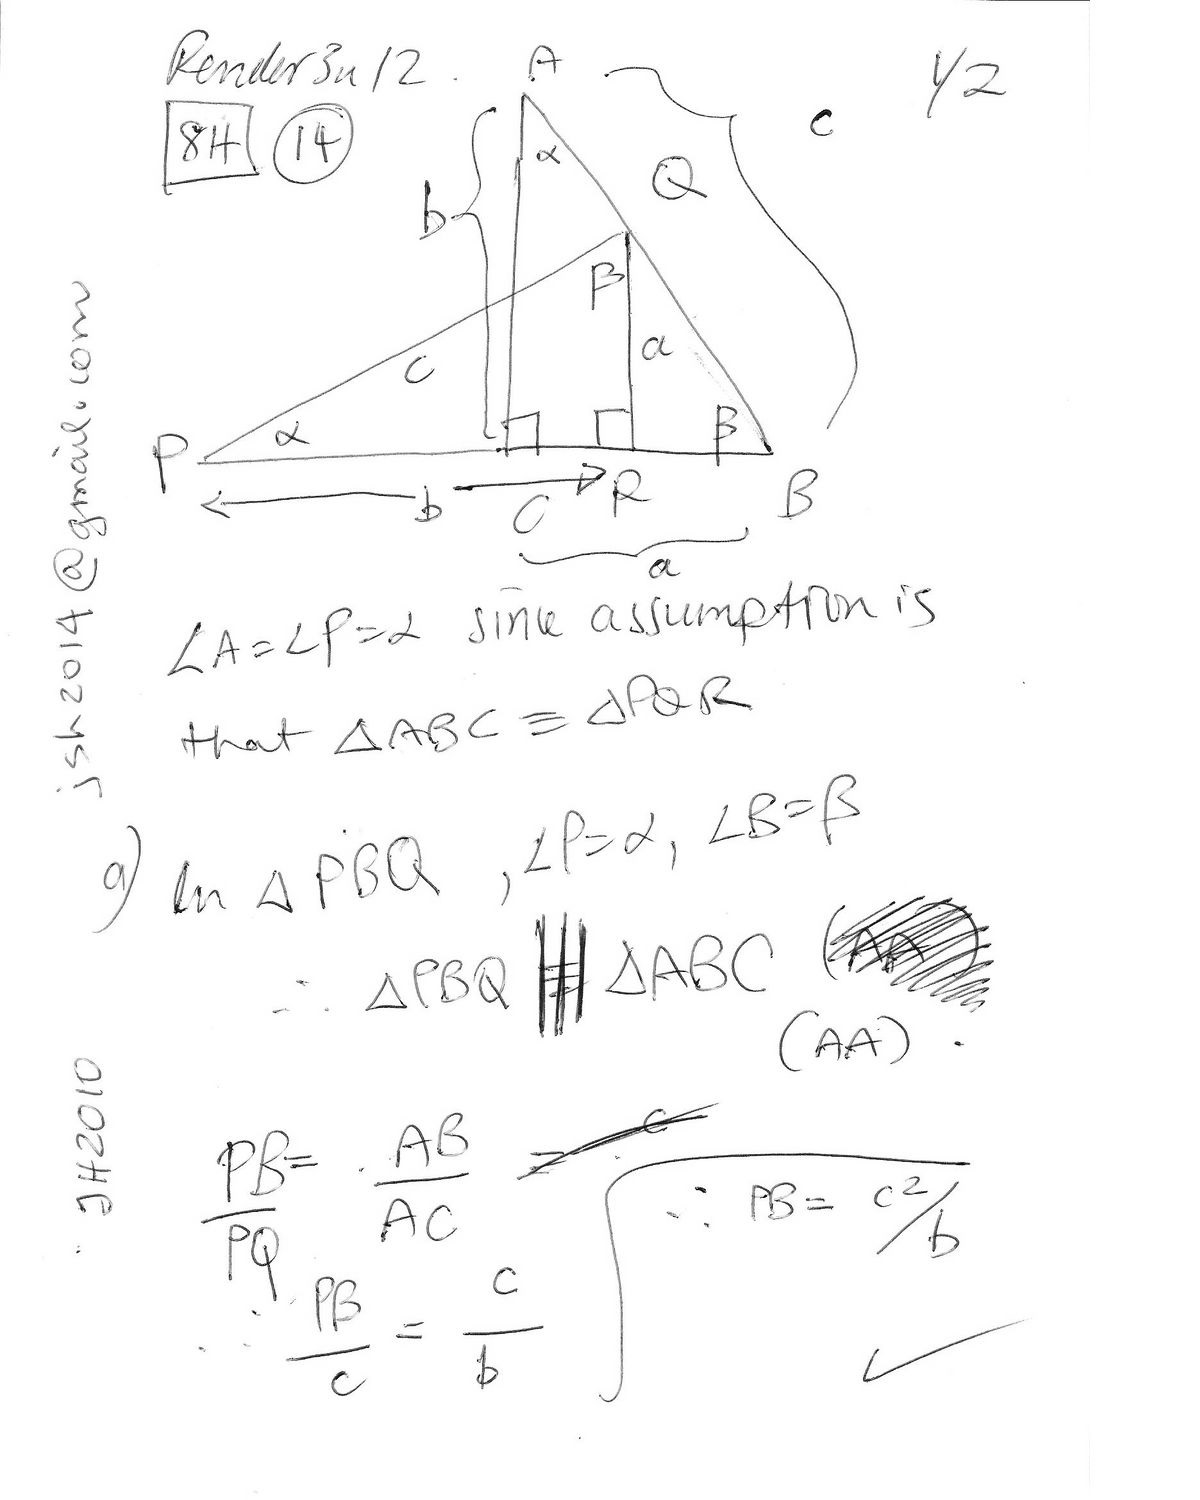 Render 3u 12. 1/2
8H 14
A
c
α
Q
b
β
c
a
P
α
β
b
C
R
B
a
∠A=∠P=α since assumption is
that △ABC ≡ △PQR
a) In △PBQ, ∠P=α, ∠B=β
∴ △PBQ ||| △ABC
(AA).
PB/PQ = AB/AC
∴ PB/c = c/b
∴ PB = c²/b
jsh2014@gmail.com
JH2010